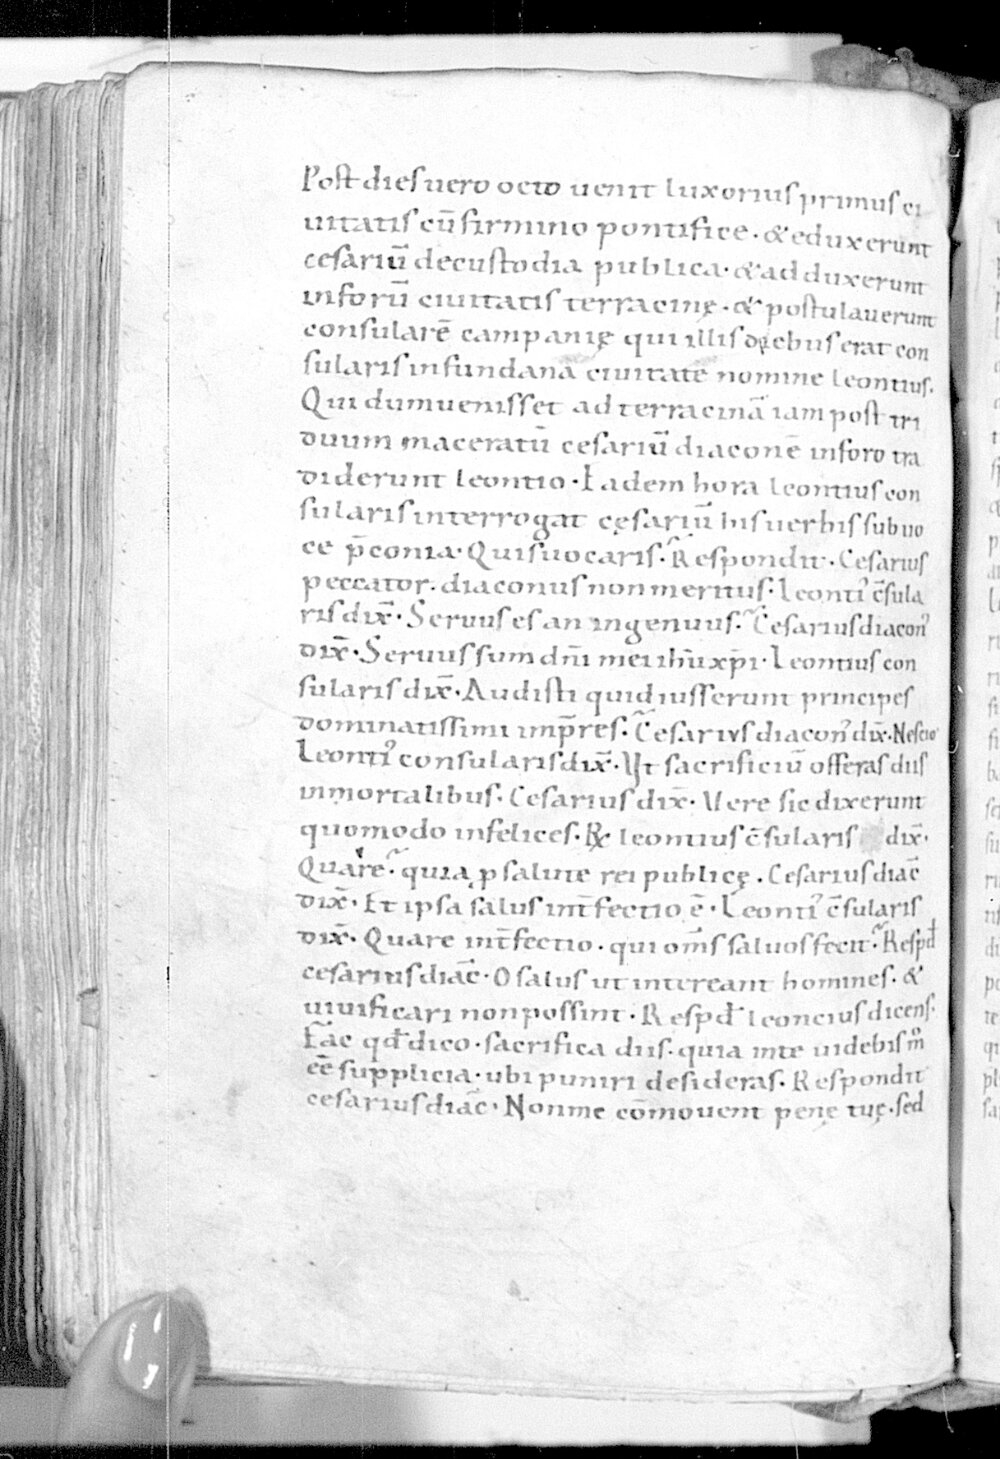 Post dies uero octo uenit luxorius primus ci
uitatis cū firmino pontifice · & eduxerunt
cesariū de custodia publica · & adduxerunt
in forū ciuitatis terracinę · & postulauerunt
consularē campanię qui illis diebus erat con
sularis in fundanā ciuitatē nomine leontius.
Qui dum uenisset ad terracinā iam post tri
duum maceratū cesariū diaconē in foro tra
diderunt leontio · Eadem hora leontius con
sularis interrogat cęsariū his uerbis sub uo
ce p̄conia · Quis uocaris. Respondit · Cesarius
peccator · diaconus non meritus · Leonti᾽ c̄sula
ris dix̄ · Seruus es an ingenuus. Cesarius diacon᾽
dix̄ · Seruus sum dn̄i mei ih̄u xp̄i · Leontius con
sularis dix̄ · Audisti quid iusserunt principes
dominatissimi imp̄res. Cesarius diacon᾽ dix̄ · Nescio
Leonti᾽ consularis dix̄ · Ut sacrificiū offeras diis
inmortalibus · Cesarius dix̄ · Vere sic dixerunt
quomodo infelices · R̄ leontius c̄sularis dix̄ ·
Quare · quia p salute rei publicę · Cesarius diac̄
dix̄ · Et ipsa salus int̄fectio ē · Leonti᾽ c̄sularis
dix̄ · Quare int̄fectio · qui om̄s saluos fecit · Resp̄d
cesarius diac̄ · O salus ut intereant homines · &
uiuificari non possint · Resp̄d leoncius dicens ·
Fac qđ dico · sacrifica diis · quia in te uidebis m᾽
ēē supplicia · ubi puniri desideras · Respondit
cesarius diac̄ · Non me cōmouent penę tuę · sed